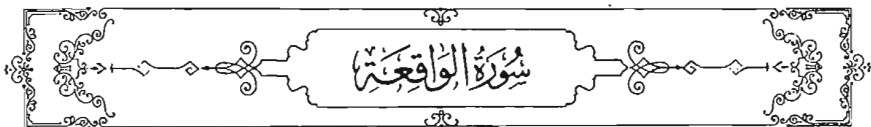 سُورَةُ الوَاقِعَةِ